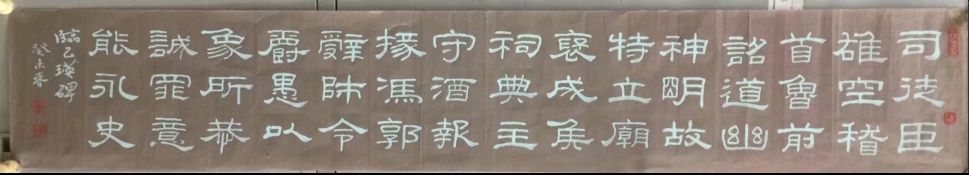 司徒臣
雄空稽
首魯前
詔道幽
神明故
特立廟
褒成侯
祠典主
守酒報
掾馮郭
辭師令
爵愚以
象所恭
誠罪意
能永史
臨乙瑛碑
癸未春